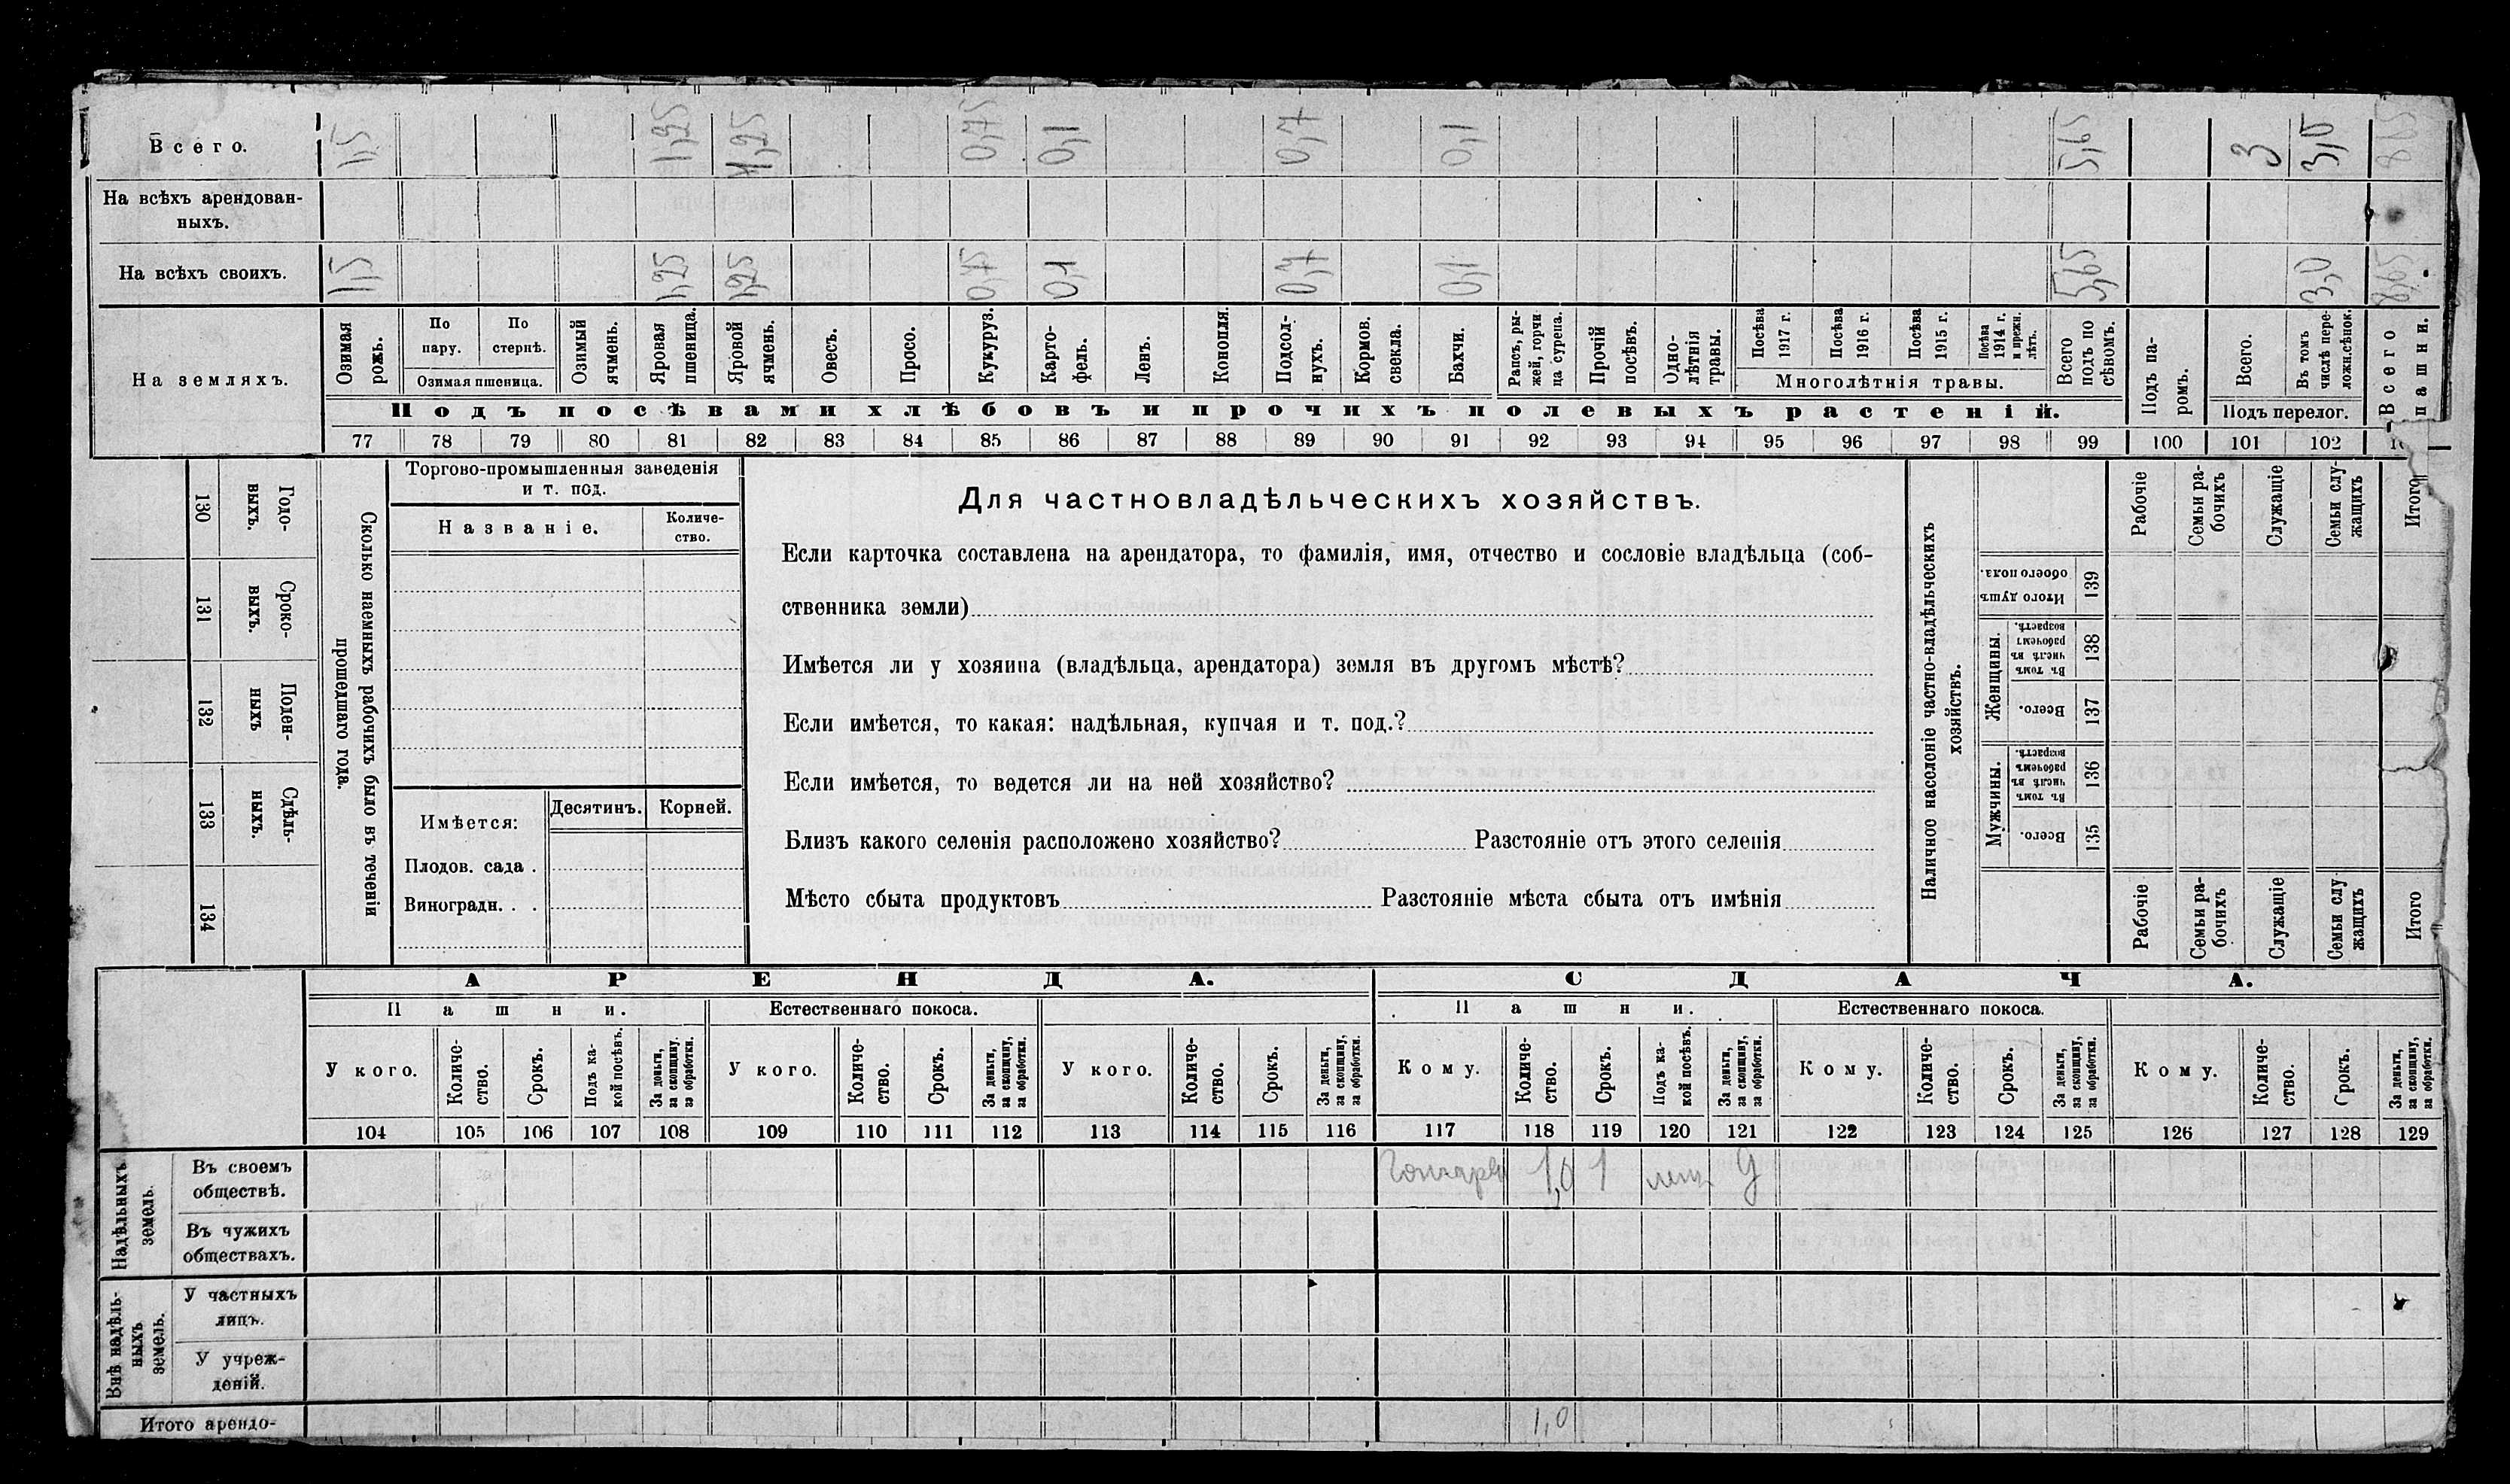 Всего. 1,5 1,25 1,25 0,75 0,1 0,7 0,1 5,65 3 3,0 8,65
На всѣхъ арендован-
ныхъ.
На всѣхъ своихъ. 1,5 1,25 1,25 0,75 0,1 0,7 0,1 5,65 3,0 8,65
На земляхъ.
Озимая рожь.
По пару.
По стернѣ.
Озимая пшеница.
Озимый ячмень.
Яровая пшеница.
Яровой ячмень.
Овесъ.
Просо.
Кукуруз.
Карто-
фель.
Ленъ.
Конопля.
Подсол-
нухъ.
Кормов. свекла.
Бахчи.
Рапсъ, ры-
жей, горчи
ца сурепа.
Прочій посѣвъ.
Одно-
лѣтнія
травы.
Посѣва 1917 г.
Посѣва 1916 г.
Посѣва 1915 г.
Посѣва 1914 г. и прежн. лѣтъ.
Многолѣтнія травы.
Всего подъ по
сѣвомъ.
Подъ па-
ромъ.
Всего.
Въ томъ числѣ пере-
ложн.сѣнок.
Подъ перелог.
Всего пашни.
Подъ посѣвами хлѣбовъ и прочихъ полевыхъ растеній.
77 78 79 80 81 82 83 84 85 86 87 88 89 90 91 92 93 94 95 96 97 98 99 100 101 102
Годо-
выхъ.
130
Сроко-
выхъ.
131
Поден-
ныхъ
132
Сдѣль-
ныхъ.
133
134
Сколько наемныхъ рабочихъ было въ теченіи
прошедшаго года.
Торгово-промышленныя заведенія
и т. под.
Названіе.
Количе-
ство.
Имѣется: Десятинъ. Корней.
Плодов. сада .
Виноградн. . .
Для частновладѣльческихъ хозяйствъ.
Если карточка составлена на арендатора, то фамилія, имя, отчество и сословіе владѣльца (соб-
ственника земли)
Имѣется ли у хозяина (владѣльца, арендатора) земля въ другомъ мѣстѣ?
Если имѣется, то какая: надѣльная, купчая и т. под.?
Если имѣется, то ведется ли на ней хозяйство?
Близъ какого селенія расположено хозяйство? Разстояніе отъ этого селенія
Мѣсто сбыта продуктовъ Разстояніе мѣста сбыта отъ имѣнія
Наличное населеніе частно-владѣльческихъ
хозяйствъ.
Рабочіе
Семьи ра-
бочихъ
Служащіе
Семьи слу-
жащихъ
Итого
Итого душъ
обоего пола.
139
Женщины.
Въ томъ числѣ въ рабочемъ возрастѣ.
138
Всего.
137
Мужчины.
Въ томъ числѣ въ рабочемъ возрастѣ.
136
Всего.
135
Рабочіе
Семьи ра-
бочихъ
Служащіе
Семьи слу
жащихъ
Итого
АРЕНДА. СДАЧА.
Пашни. Естественнаго покоса. Пашни. Естественнаго покоса.
У кого.
Количе-
ство.
Срокъ.
Подъ ка-
кой посѣвъ.
За деньги,
за скопщину,
за обработки.
У кого.
Количе-
ство.
Срокъ.
За деньги,
за скопщину,
за обработки.
У кого.
Количе-
ство.
Срокъ.
За деньги,
за скопщину,
за обработки.
Кому.
Количе-
ство.
Срокъ.
Подъ ка-
кой посѣвъ.
За деньги,
за скопщину,
за обработки.
Кому.
Количе-
ство.
Срокъ.
За деньги,
за скопщину,
за обработки.
Кому.
Количе-
ство.
Срокъ.
За деньги,
за скопщину,
за обработки.
104 105 106 107 108 109 110 111 112 113 114 115 116 117 118 119 120 121 122 123 124 125 126 127 128 129
Надѣльныхъ
земель.
Въ своемъ
обществѣ. 1,0 1
Въ чужихъ
обществахъ.
Внѣ надѣль-
ныхъ
земель.
У частныхъ
лицъ.
У учреж-
деній.
Итого арендо- 1,0